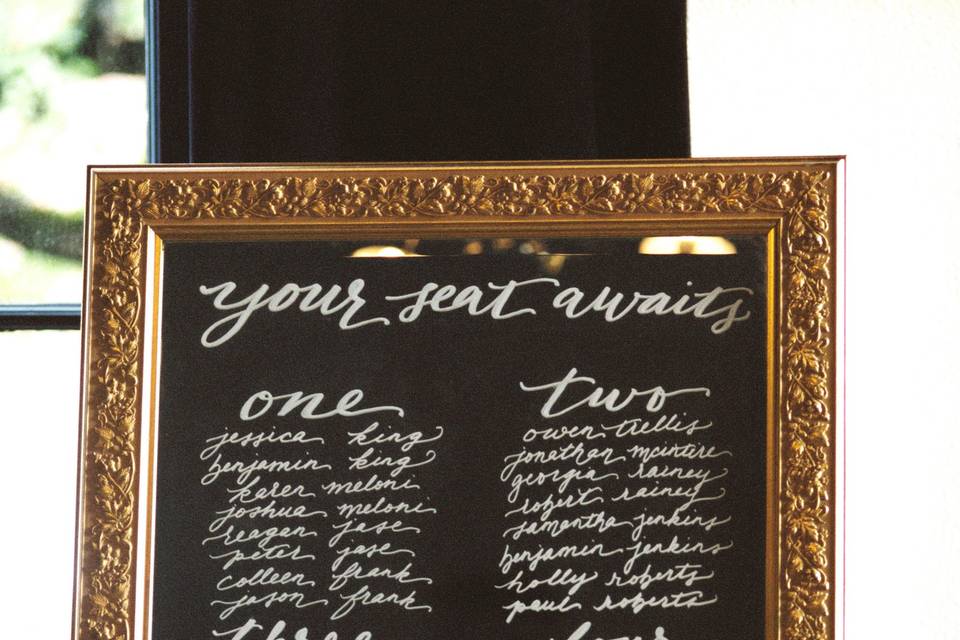 your seat awaits
one
jessica king
benjamin king
karen meloni
joshua meloni
reagan jase
peter jase
colleen frank
jason frank
two
owen trellis
jonathan mcintire
georgia rainey
robert rainey
samantha jenkins
benjamin jenkins
holly roberts
paul roberts
three
four